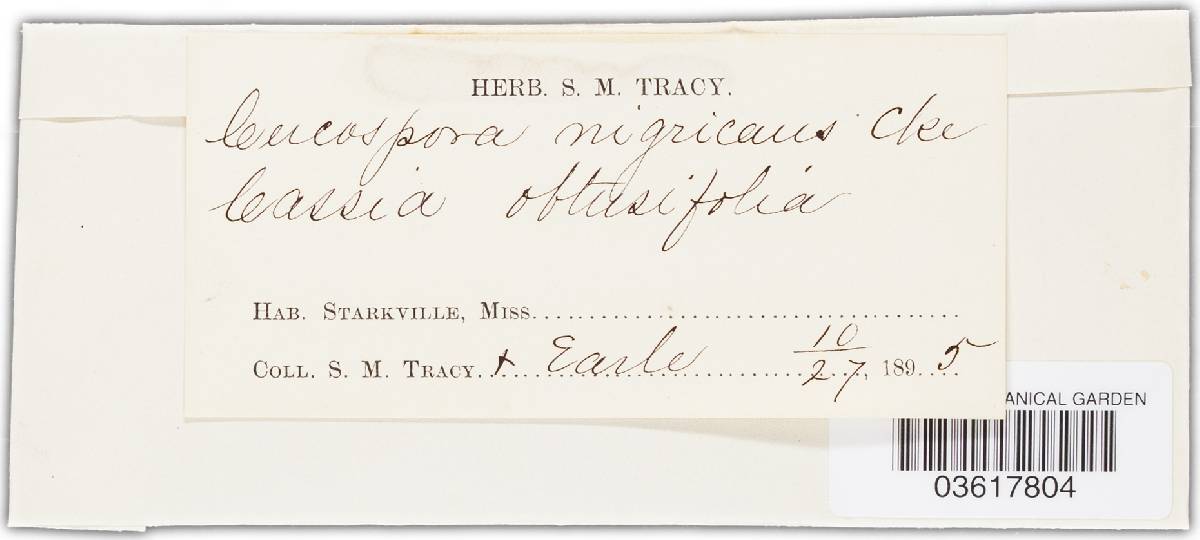 HERB. S. M. TRACY.
Cercospora nigricans Cke
Cassia obtusifolia
HAB. STARKVILLE, MISS.
COLL. S. M. TRACY. + Earle 10/27, 1895
ANICAL GARDEN
03617804